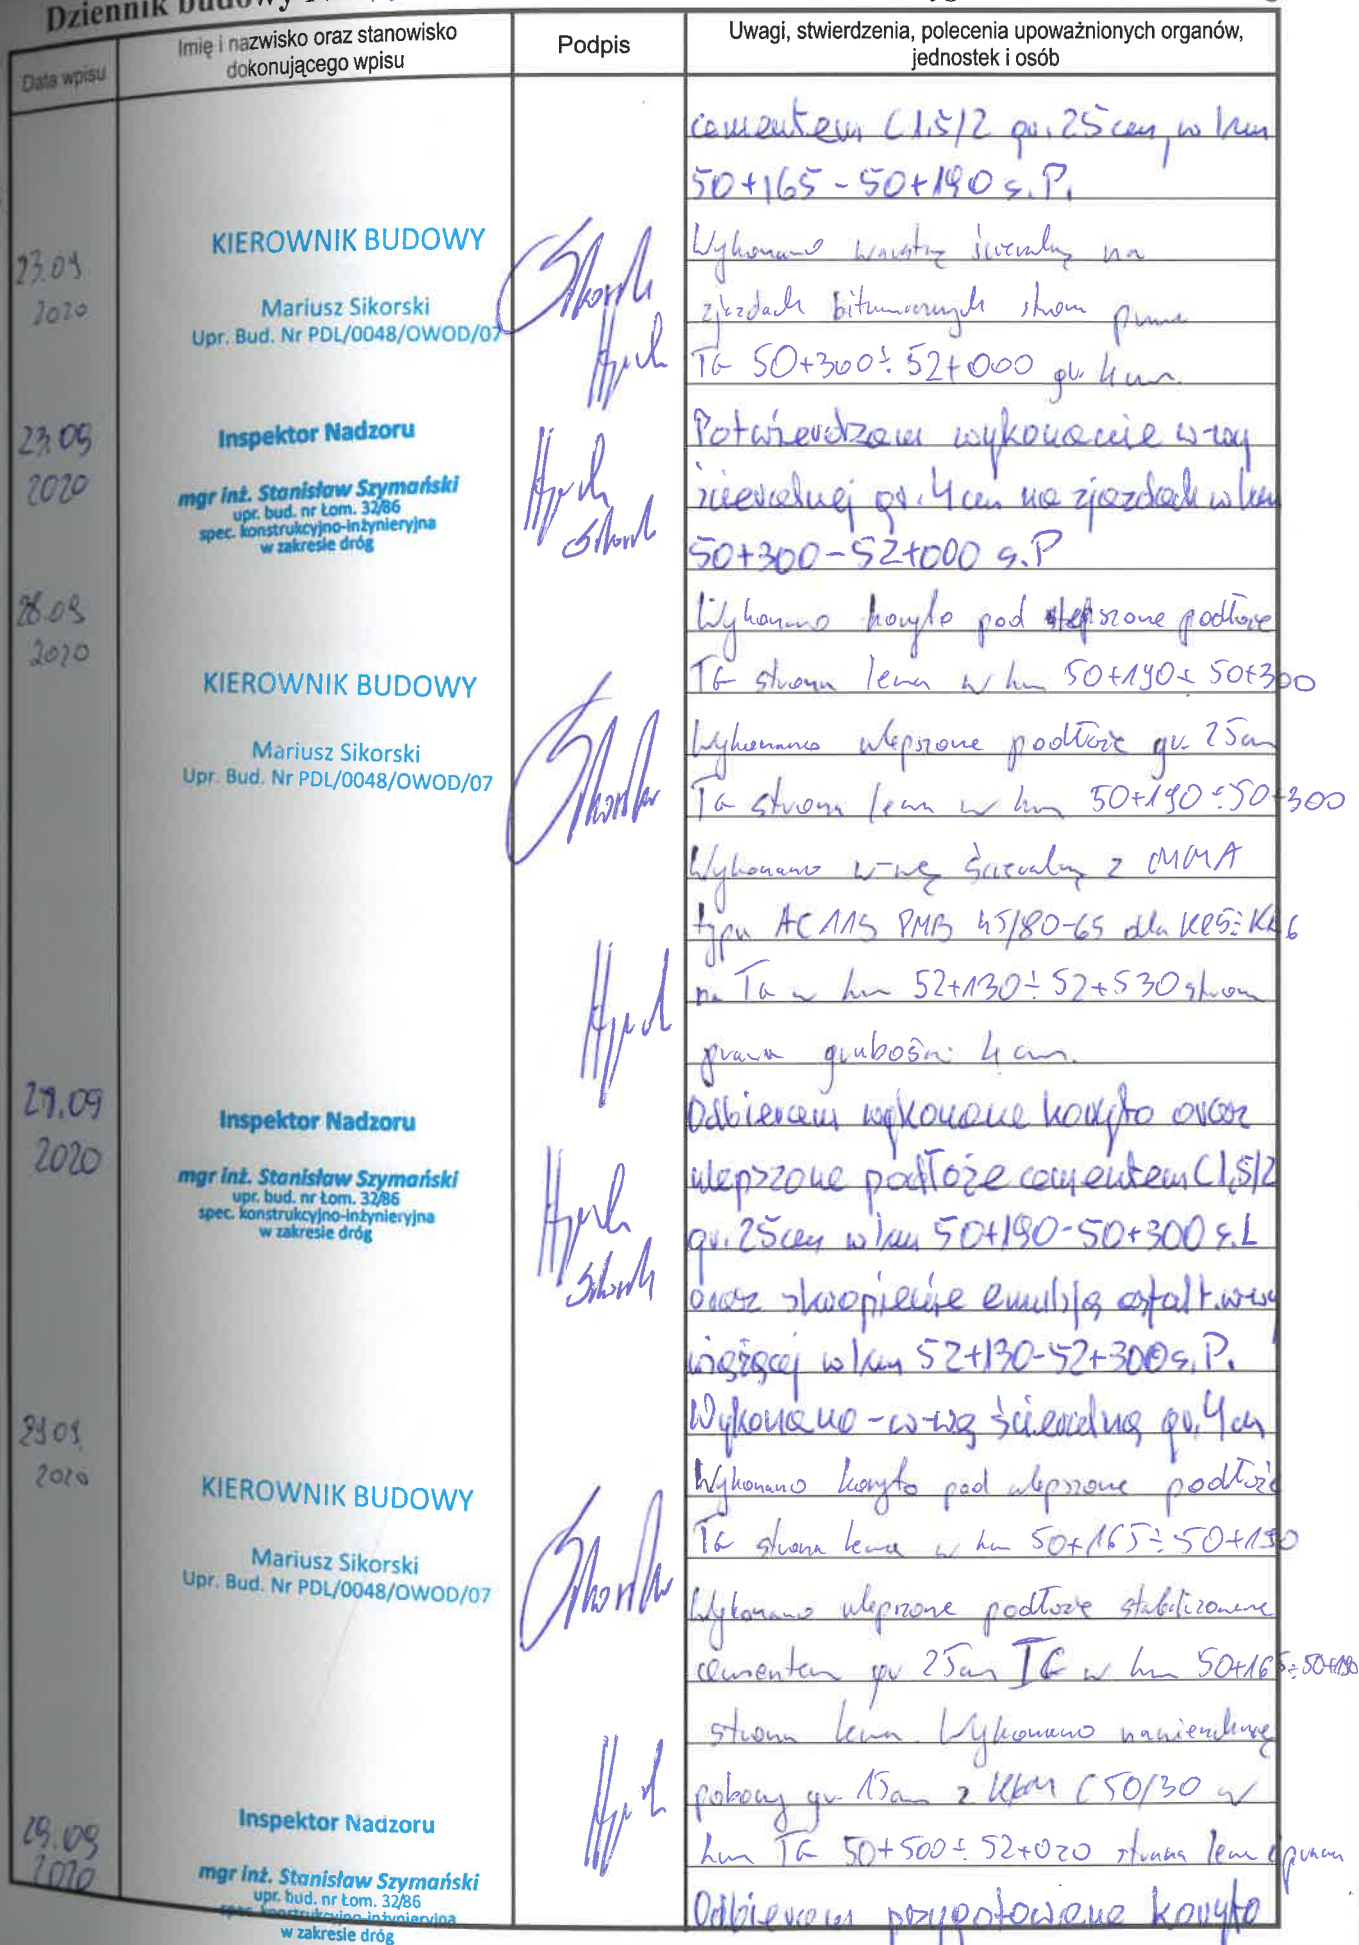 Dziennik Budowy
Data wpisu
Imię i nazwisko oraz stanowisko
dokonującego wpisu
Podpis
Uwagi, stwierdzenia, polecenia upoważnionych organów,
jednostek i osób
cementem C1,5/2 gr. 25 cm, w km
50+165 - 50+190 s.P.
23.09
2020
KIEROWNIK BUDOWY
Mariusz Sikorski
Upr. Bud. Nr PDL/0048/OWOD/07
Wykonano warstwę ścieralną na
zjazdach bitumicznych strona prawa
TG 50+300 ÷ 52+000 gr. 4 cm.
23.09
2020
Inspektor Nadzoru
mgr inż. Stanisław Szymański
upr. bud. nr Łom. 32/86
spec. konstrukcyjno-inżynieryjna
w zakresie dróg
Potwierdzam wykonanie w-wy
ścieralnej gr. 4 cm na zjazdach w km
50+300 - 52+000 s.P
28.09
2020
KIEROWNIK BUDOWY
Mariusz Sikorski
Upr. Bud. Nr PDL/0048/OWOD/07
Wykonano koryto pod ulepszone podłoże
TG strona lewa w km 50+190 ÷ 50+300
Wykonano ulepszone podłoże gr. 25cm
TG strona lewa w km 50+190 ÷ 50+300
Wykonano w-wę ścieralną z MMA
typu AC 11S PMB 45/80-65 dla KR5 ÷ KR6
na TG w km 52+130 ÷ 52+530 strona
prawa grubości 4 cm.
29.09
2020
Inspektor Nadzoru
mgr inż. Stanisław Szymański
upr. bud. nr Łom. 32/86
spec. konstrukcyjno-inżynieryjna
w zakresie dróg
Odbieram wykonane koryto oraz
ulepszone podłoże cementem C1,5/2
gr. 25cm w km 50+190-50+300 s.L
oraz skropienie emulsją asfalt. w-wy
wiążącej w km 52+130-52+300 s.P.
Wykonano - w-wę ścieralną gr. 4 cm
29.09
2020
KIEROWNIK BUDOWY
Mariusz Sikorski
Upr. Bud. Nr PDL/0048/OWOD/07
Wykonano koryto pod ulepszone podłoże
TG strona lewa w km 50+165 ÷ 50+190
Wykonano ulepszone podłoże stabilizowane
cementem gr 25cm TG w km 50+165 ÷ 50+190
strona lewa. Wykonano nawierzchnię
gr. 15cm z C 50/30 w
km TG 50+500 ÷ 52+020 strona lewa i prawa
29.09
2020
Inspektor Nadzoru
mgr inż. Stanisław Szymański
upr. bud. nr Łom. 32/86
spec. konstrukcyjno-inżynieryjna
w zakresie dróg
Odbieram przygotowane koryto